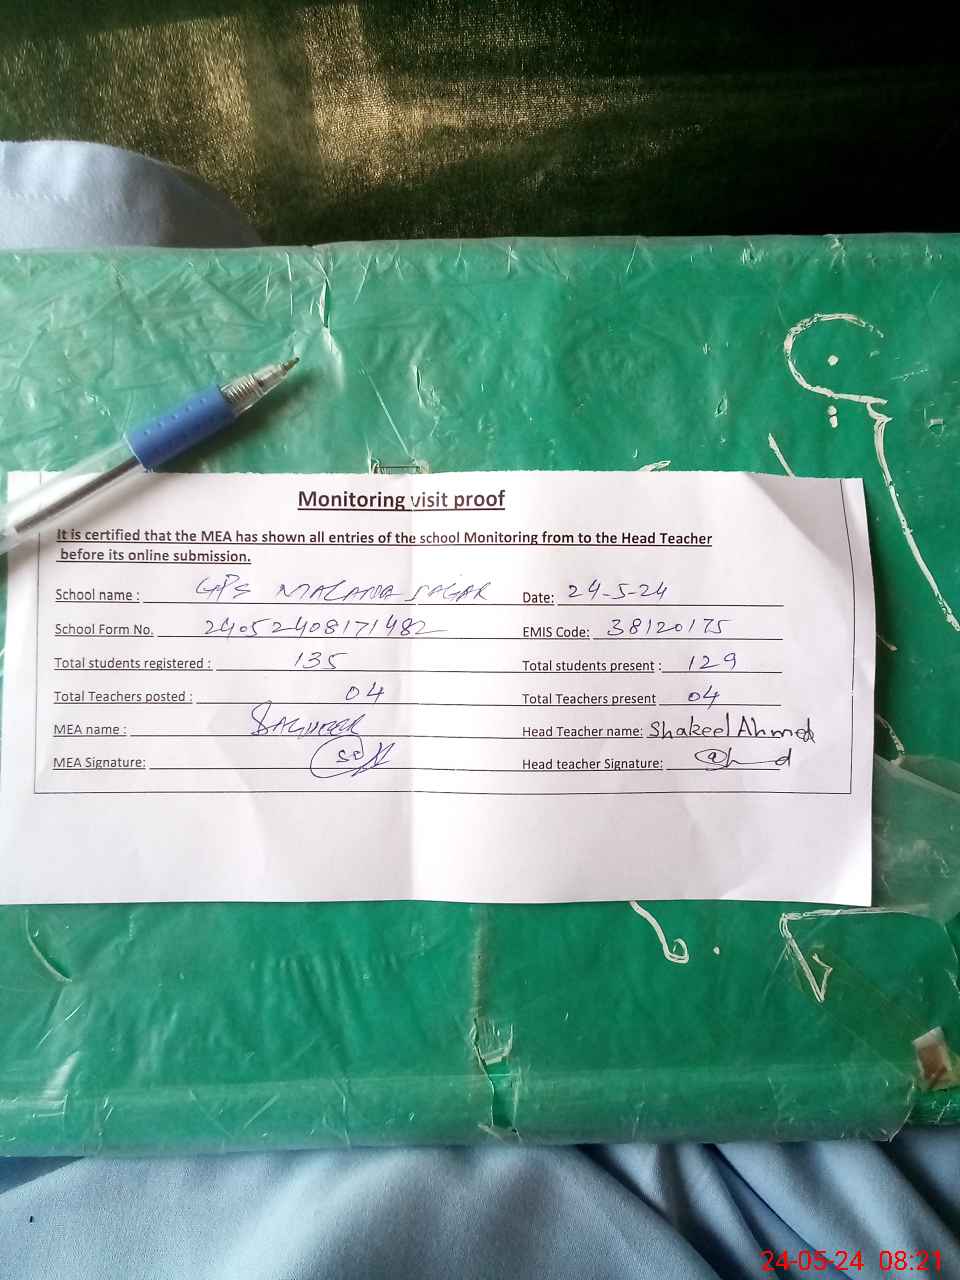 Monitoring visit proof
It is certified that the MEA has shown all entries of the school Monitoring from to the Head Teacher
before its online submission.
School name : GPS MALANA SAGAR Date: 24-5-24
School Form No. 24052408171482 EMIS Code: 38120175
Total students registered : 135 Total students present : 129
Total Teachers posted : 04 Total Teachers present 04
MEA name : Head Teacher name: Shakeel Ahmed
MEA Signature: Head teacher Signature:
24-05-24 08:21